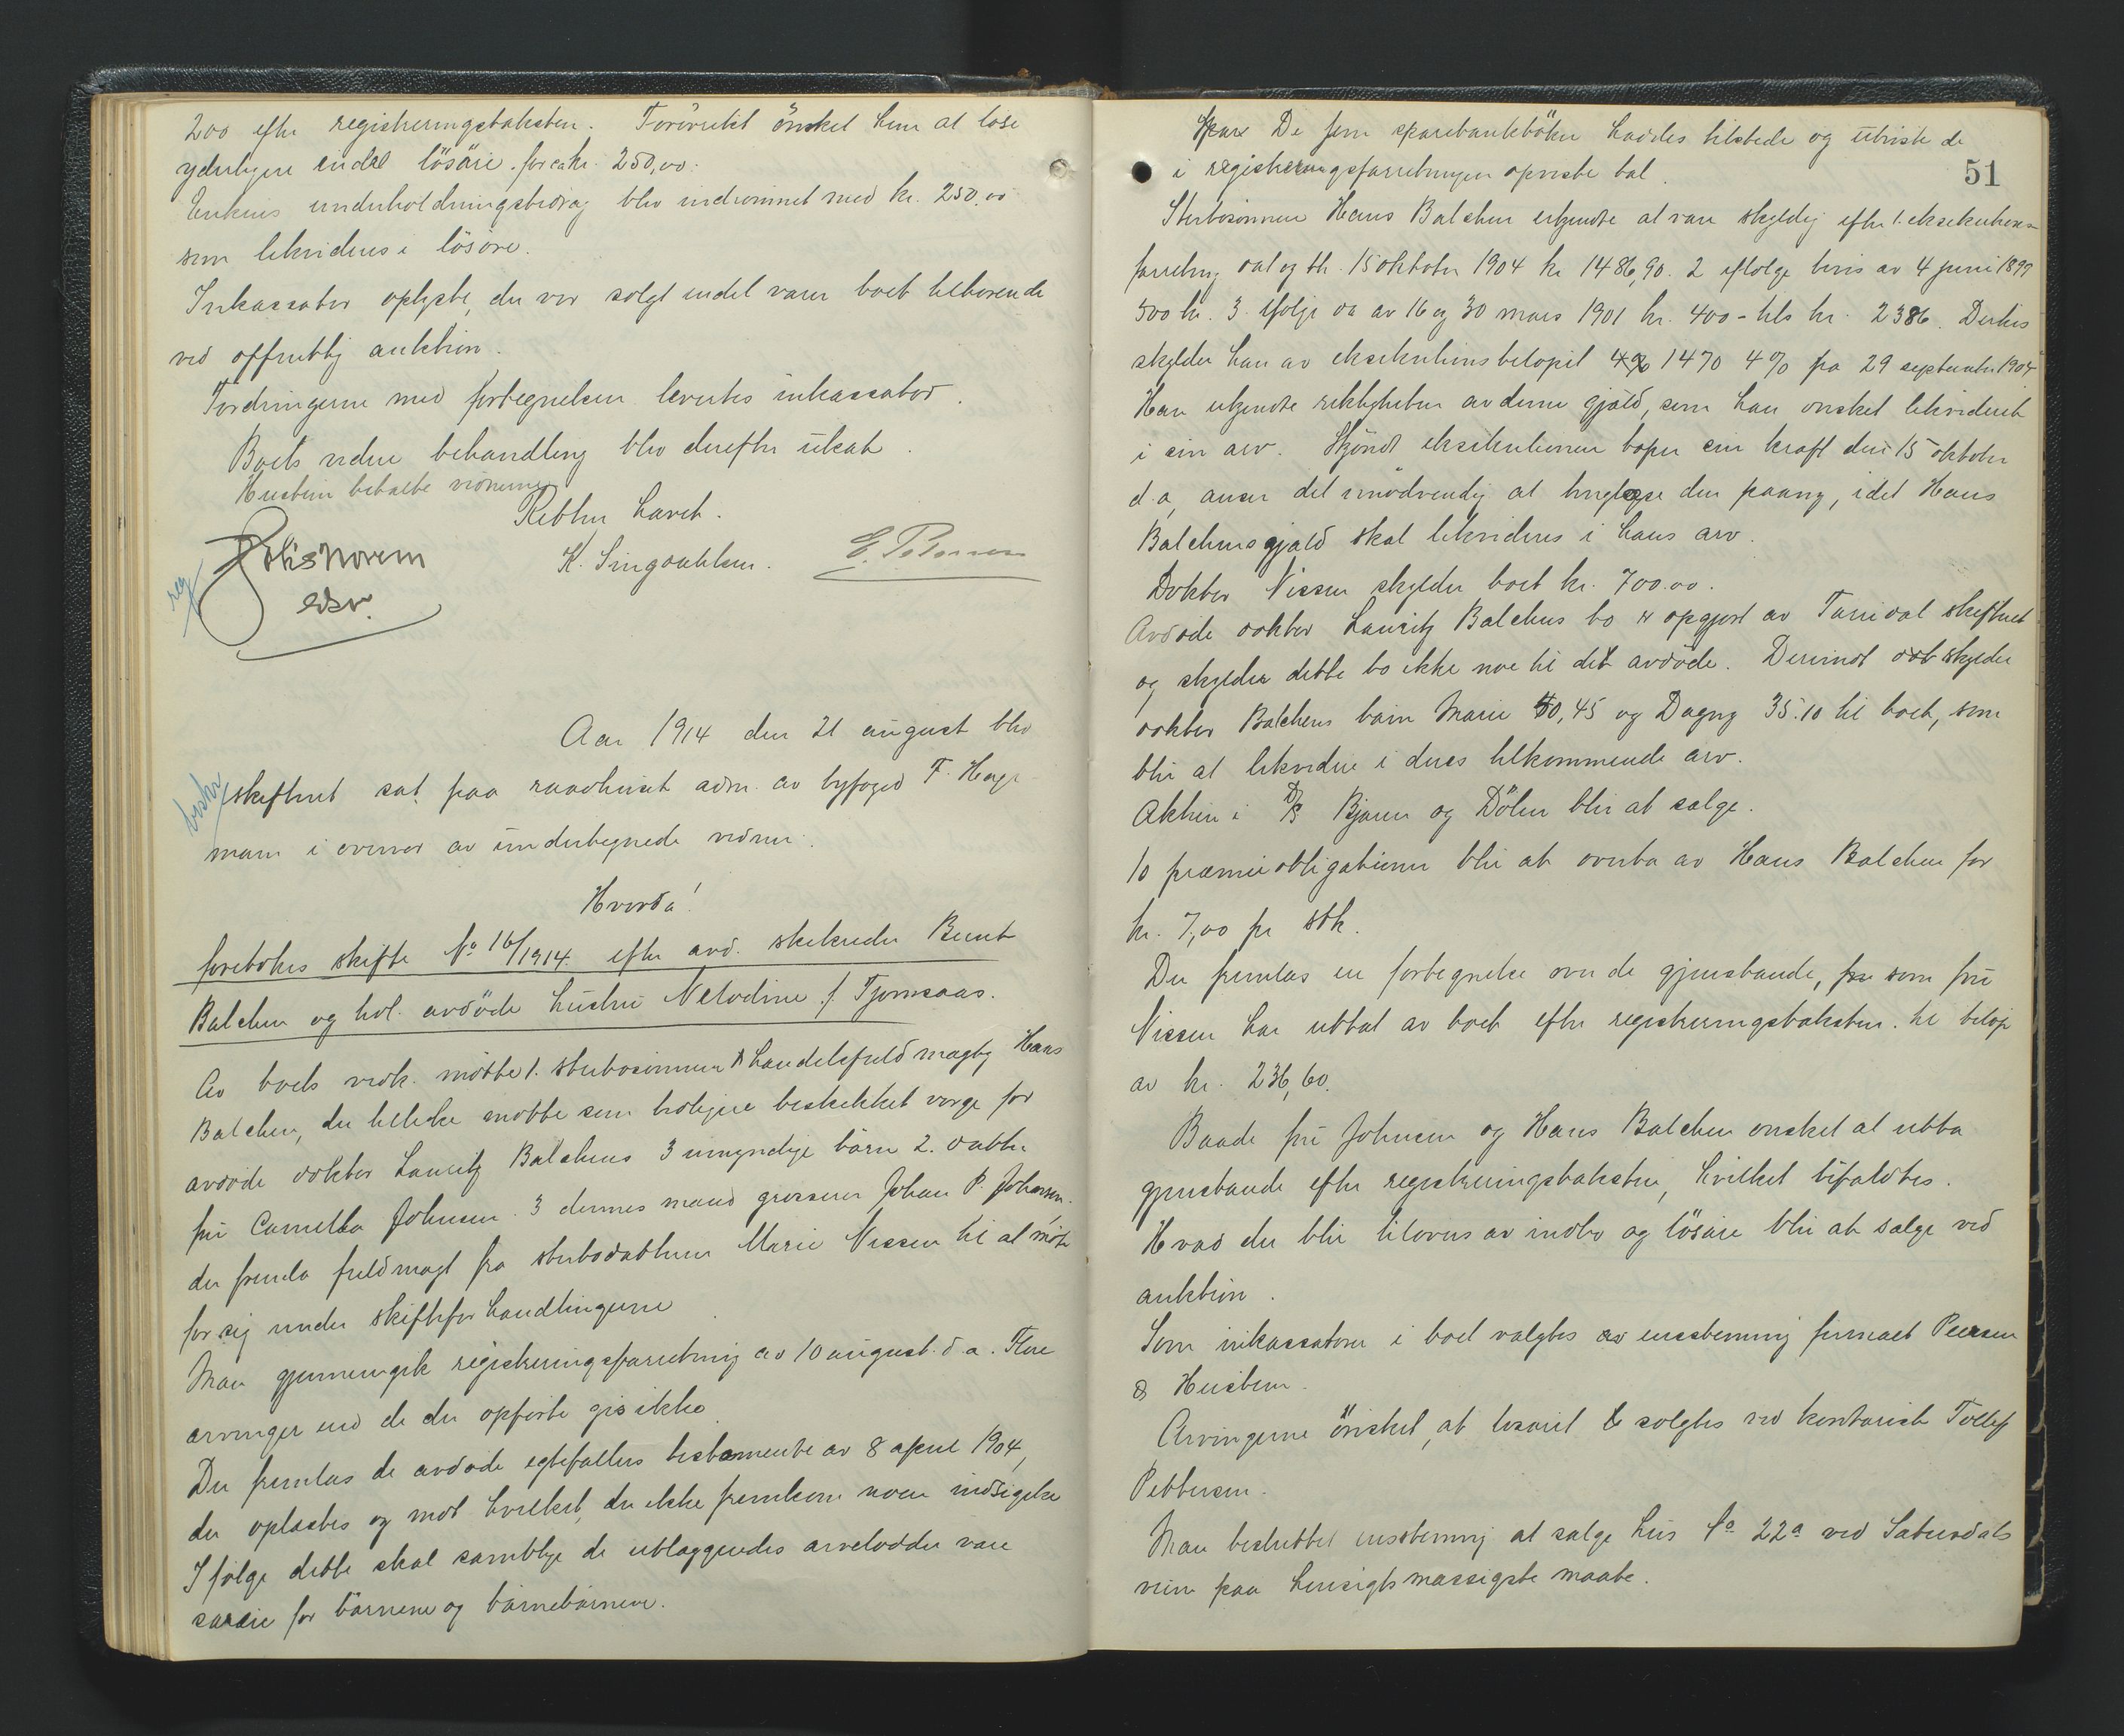 200 efter registreringstaksten. Forövrikt önsket hun at löse
yderligere endel lösöre for ca kr. 250,00.
Enkens underholdningsbidrag blev indrömmet med kr. 250.00
som likvideres i lösöre.
Inkassator oplyste, der var solgt endel varer boet tilhörende
ved offentlig auktion.
Fordringerne med fortegnelsen levertes inkassator.
Boets videre behandling blev derefter utsat.
Husbein betalte vidnerne
Retten hævet.
K. Singdahlsen. E. Petersen
edsv.
reg
Aar 1914 den 21 august blev
skifteret sat paa raadhuset adm. av byfoged F. Hage
mann i overvær av undertegnede vidner.
Hvorda!
foretokes skifte No 16/1914 efter avd. skibsreder Bernt
Balchen og tidl. avdöde hustru Nelodine f. Tjomsaas.
Av boets vedk. mötte 1. sterbosönnen handelsfuldmægtig Hans
Balchen, der tillike mötte som tidligere beskikket verge for
avdöde doktor Lauritz Balchens 3 umyndige börn 2. datter
fru Camella Johnsen 3 dennes mand grosserer Johan P. Johnsen,
der fremla fuldmagt fra sterbodatteren Marie Nissen til at möte
for sig under skifteforhandlingerne
Man gjennemgik registreringsforretning av 10 august d.a. Flere
arvinger end de der opförte gis ikke.
Der fremlas de avdöde egtefællers testamente av 8 april 1904,
der oplæstes og mot hvilket der ikke fremkom noen indsigelse
I fölge dette skal samtlige de utlæggendes arvelodder være
særeie for börnene og börnebörnene.
51
De fem sparebankböker havdes tilstede og utviste de
i registreringsforretningen opviste tal.
Sterbosönnen Hans Balchen erkjendte at være skyldig efter 1. eksekutions
forretning dat og th. 15 oktober 1904 kr 1486,90. 2 ifölge bevis av 4 juni 1899
500 kr. 3. ifölge do av 16 og 30 mars 1901 kr. 400 - tils kr. 2386. Desuten
skylder han av eksekutionsbelöpet 1470 4% fra 29 september 1904
Han erkjendte rektigheten av denne gjæld, som han önsket likvideret
i sin arv. Skjöndt eksekutionen taper sin kraft den 15 oktober
d.a, anser det unödvendig at tinglæse den paany, idet Hans
Balchens gjæld skal likvideres i hans arv.
Doktor Nissen skylder boet kr. 700.00.
Avdöde doktor Lauritz Balchens bo er opgjort av skifteret
og skylder dette bo ikke noe til det avdöde. Derimot skylder
doktor Balchens barn Marie 50,45 og Dagny 35.10 til boet, som
blir at likvidere i deres tilkommende arv.
Aktien i D/S Bjaren og Dölen blir at sælge.
10 præmieobligationer blir at overta av Hans Balchen for
kr. 7,00 pr stk.
Der fremlas en fortegnelse over de gjenstande, som fru
Nissen har uttat av boet efter registreringstaksten til belöp
av kr. 236,60.
Baade fru Johnsen og Hans Balchen önsket at utta
gjenstande efter registreringstaksten, hvilket bifaldtes.
Hvad der blir tilovers av indbo og lösöre blir at sælge ved
auktion.
Som inkassatorer i boet valgtes enstemmig firmaet Peersen
& Husbein.
Arvingerne önsket, at lösöret solgtes ved kontorist Tellef
Pettersen.
Man besluttet enstemmig at sælge hus No 22a ved Sætersdals
veien paa hensigtsmæssigste maate.